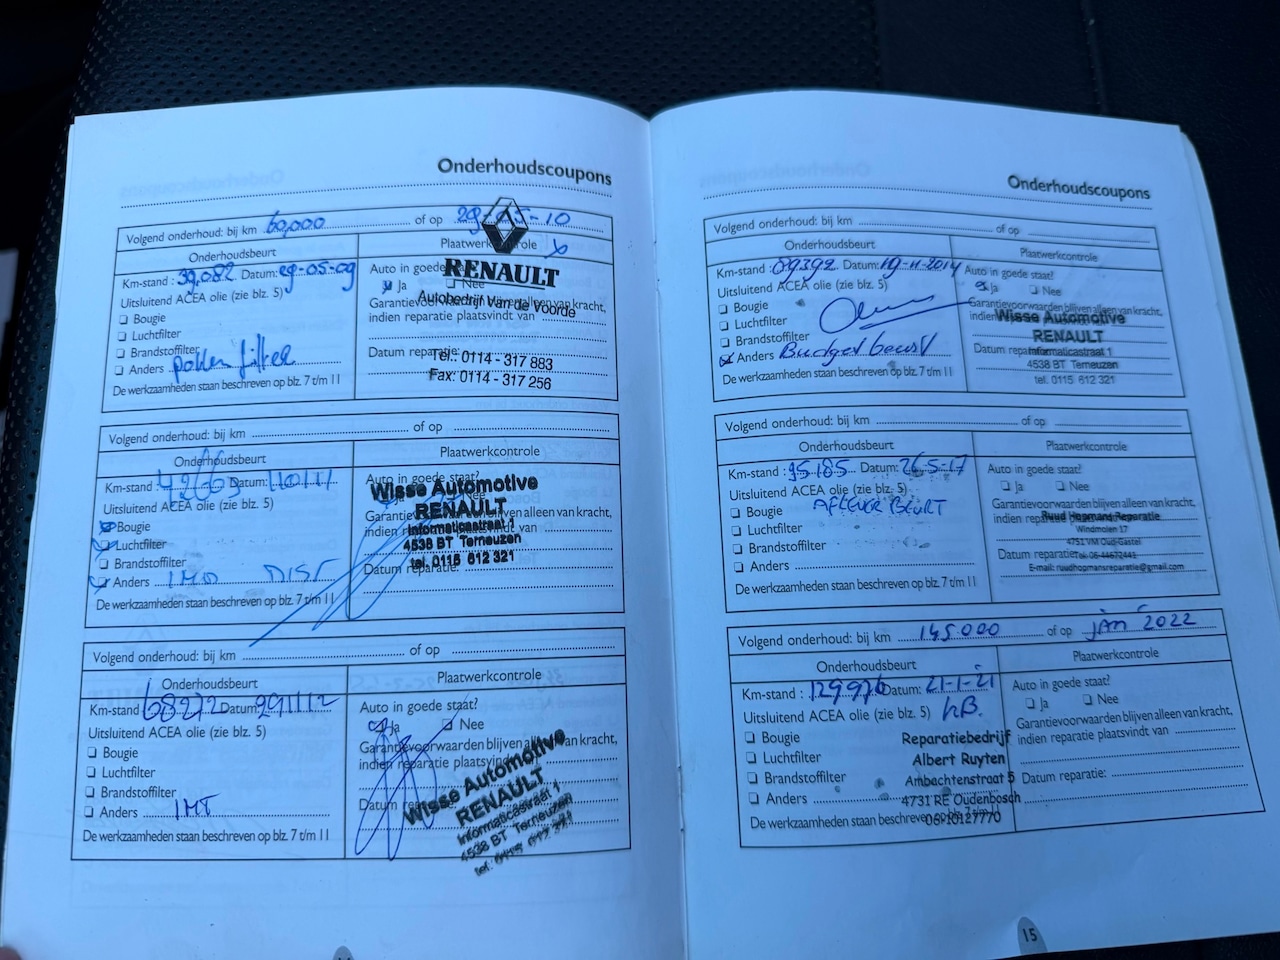 Onderhoudscoupons
Volgend onderhoud: bij km 60,000 of op 29-05-10
Onderhoudsbeurt
Plaatwerkcontrole
Km-stand : 39,082 Datum: 29-05-09
Uitsluitend ACEA olie (zie blz. 5)
Bougie
Luchtfilter
Brandstoffilter
Anders pollen filter
De werkzaamheden staan beschreven op blz. 7 t/m 11
Auto in goede
Ja Nee
Garantievoorwaarden blijven alleen van kracht,
indien reparatie plaatsvindt van
Datum reparatie:
RENAULT
Autobedrijf Van de Voorde
Tel.: 0114 - 317 883
Fax: 0114 - 317 256
Volgend onderhoud: bij km of op
Onderhoudsbeurt
Plaatwerkcontrole
Km-stand : Datum:
Uitsluitend ACEA olie (zie blz. 5)
Bougie
Luchtfilter
Brandstoffilter
Anders DIST
De werkzaamheden staan beschreven op blz. 7 t/m 11
Auto in goede staat?
Nee
blijven alleen van kracht,
indien van
Datum reparatie:
Wisse Automotive
RENAULT
Informaticastraat 1
4538 BT Terneuzen
tel. 0115 612 321
Volgend onderhoud: bij km of op
Onderhoudsbeurt
Plaatwerkcontrole
Km-stand 68272 Datum: 291112
Uitsluitend ACEA olie (zie blz. 5)
Bougie
Luchtfilter
Brandstoffilter
Anders IMT
De werkzaamheden staan beschreven op blz. 7 t/m 11
Auto in goede staat?
Ja Nee
Garantievoorwaarden blijven alleen van kracht,
indien reparatie plaatsvindt
Datum
Wisse Automotive
RENAULT
Informaticastraat 1
4538 BT Terneuzen
tel. 0115 612 321
Onderhoudscoupons
Volgend onderhoud: bij km of op
Onderhoudsbeurt
Plaatwerkcontrole
Km-stand : 89392 Datum: 19-11-2014
Uitsluitend ACEA olie (zie blz. 5)
Bougie
Luchtfilter
Brandstoffilter
Anders Budget beurt
De werkzaamheden staan beschreven op blz. 7 t/m 11
Auto in goede staat?
Ja Nee
Garantievoorwaarden blijven alleen van kracht,
Wisse Automotive
RENAULT
Datum
Informaticastraat 1
4538 BT Terneuzen
tel. 0115 612 321
Volgend onderhoud: bij km of op
Onderhoudsbeurt
Plaatwerkcontrole
Km-stand : 95.185 Datum: 26-5-17
Uitsluitend ACEA olie (zie blz. 5)
Bougie AFLEVER BEURT
Luchtfilter
Brandstoffilter
Anders
De werkzaamheden staan beschreven op blz. 7 t/m 11
Auto in goede staat?
Ja Nee
Garantievoorwaarden blijven alleen van kracht,
indien
Datum reparatie:
Ruud Hopmans Reparatie
Windmolen 17
4751 VM Oud-Gastel
E-mail: ruudhopmansreparatie@gmail.com
Volgend onderhoud: bij km 145.000 of op jan 2022
Onderhoudsbeurt
Plaatwerkcontrole
Km-stand : 129976 Datum: 21-1-21
Uitsluitend ACEA olie (zie blz. 5)
Bougie
Luchtfilter
Brandstoffilter
Anders
De werkzaamheden staan
Auto in goede staat?
Ja Nee
Garantievoorwaarden blijven alleen van kracht,
indien reparatie plaatsvindt van
Datum reparatie:
Reparatiebedrijf
Albert Ruyten
Ambachtenstraat 5
4731 RE Oudenbosch
06-10127770
15